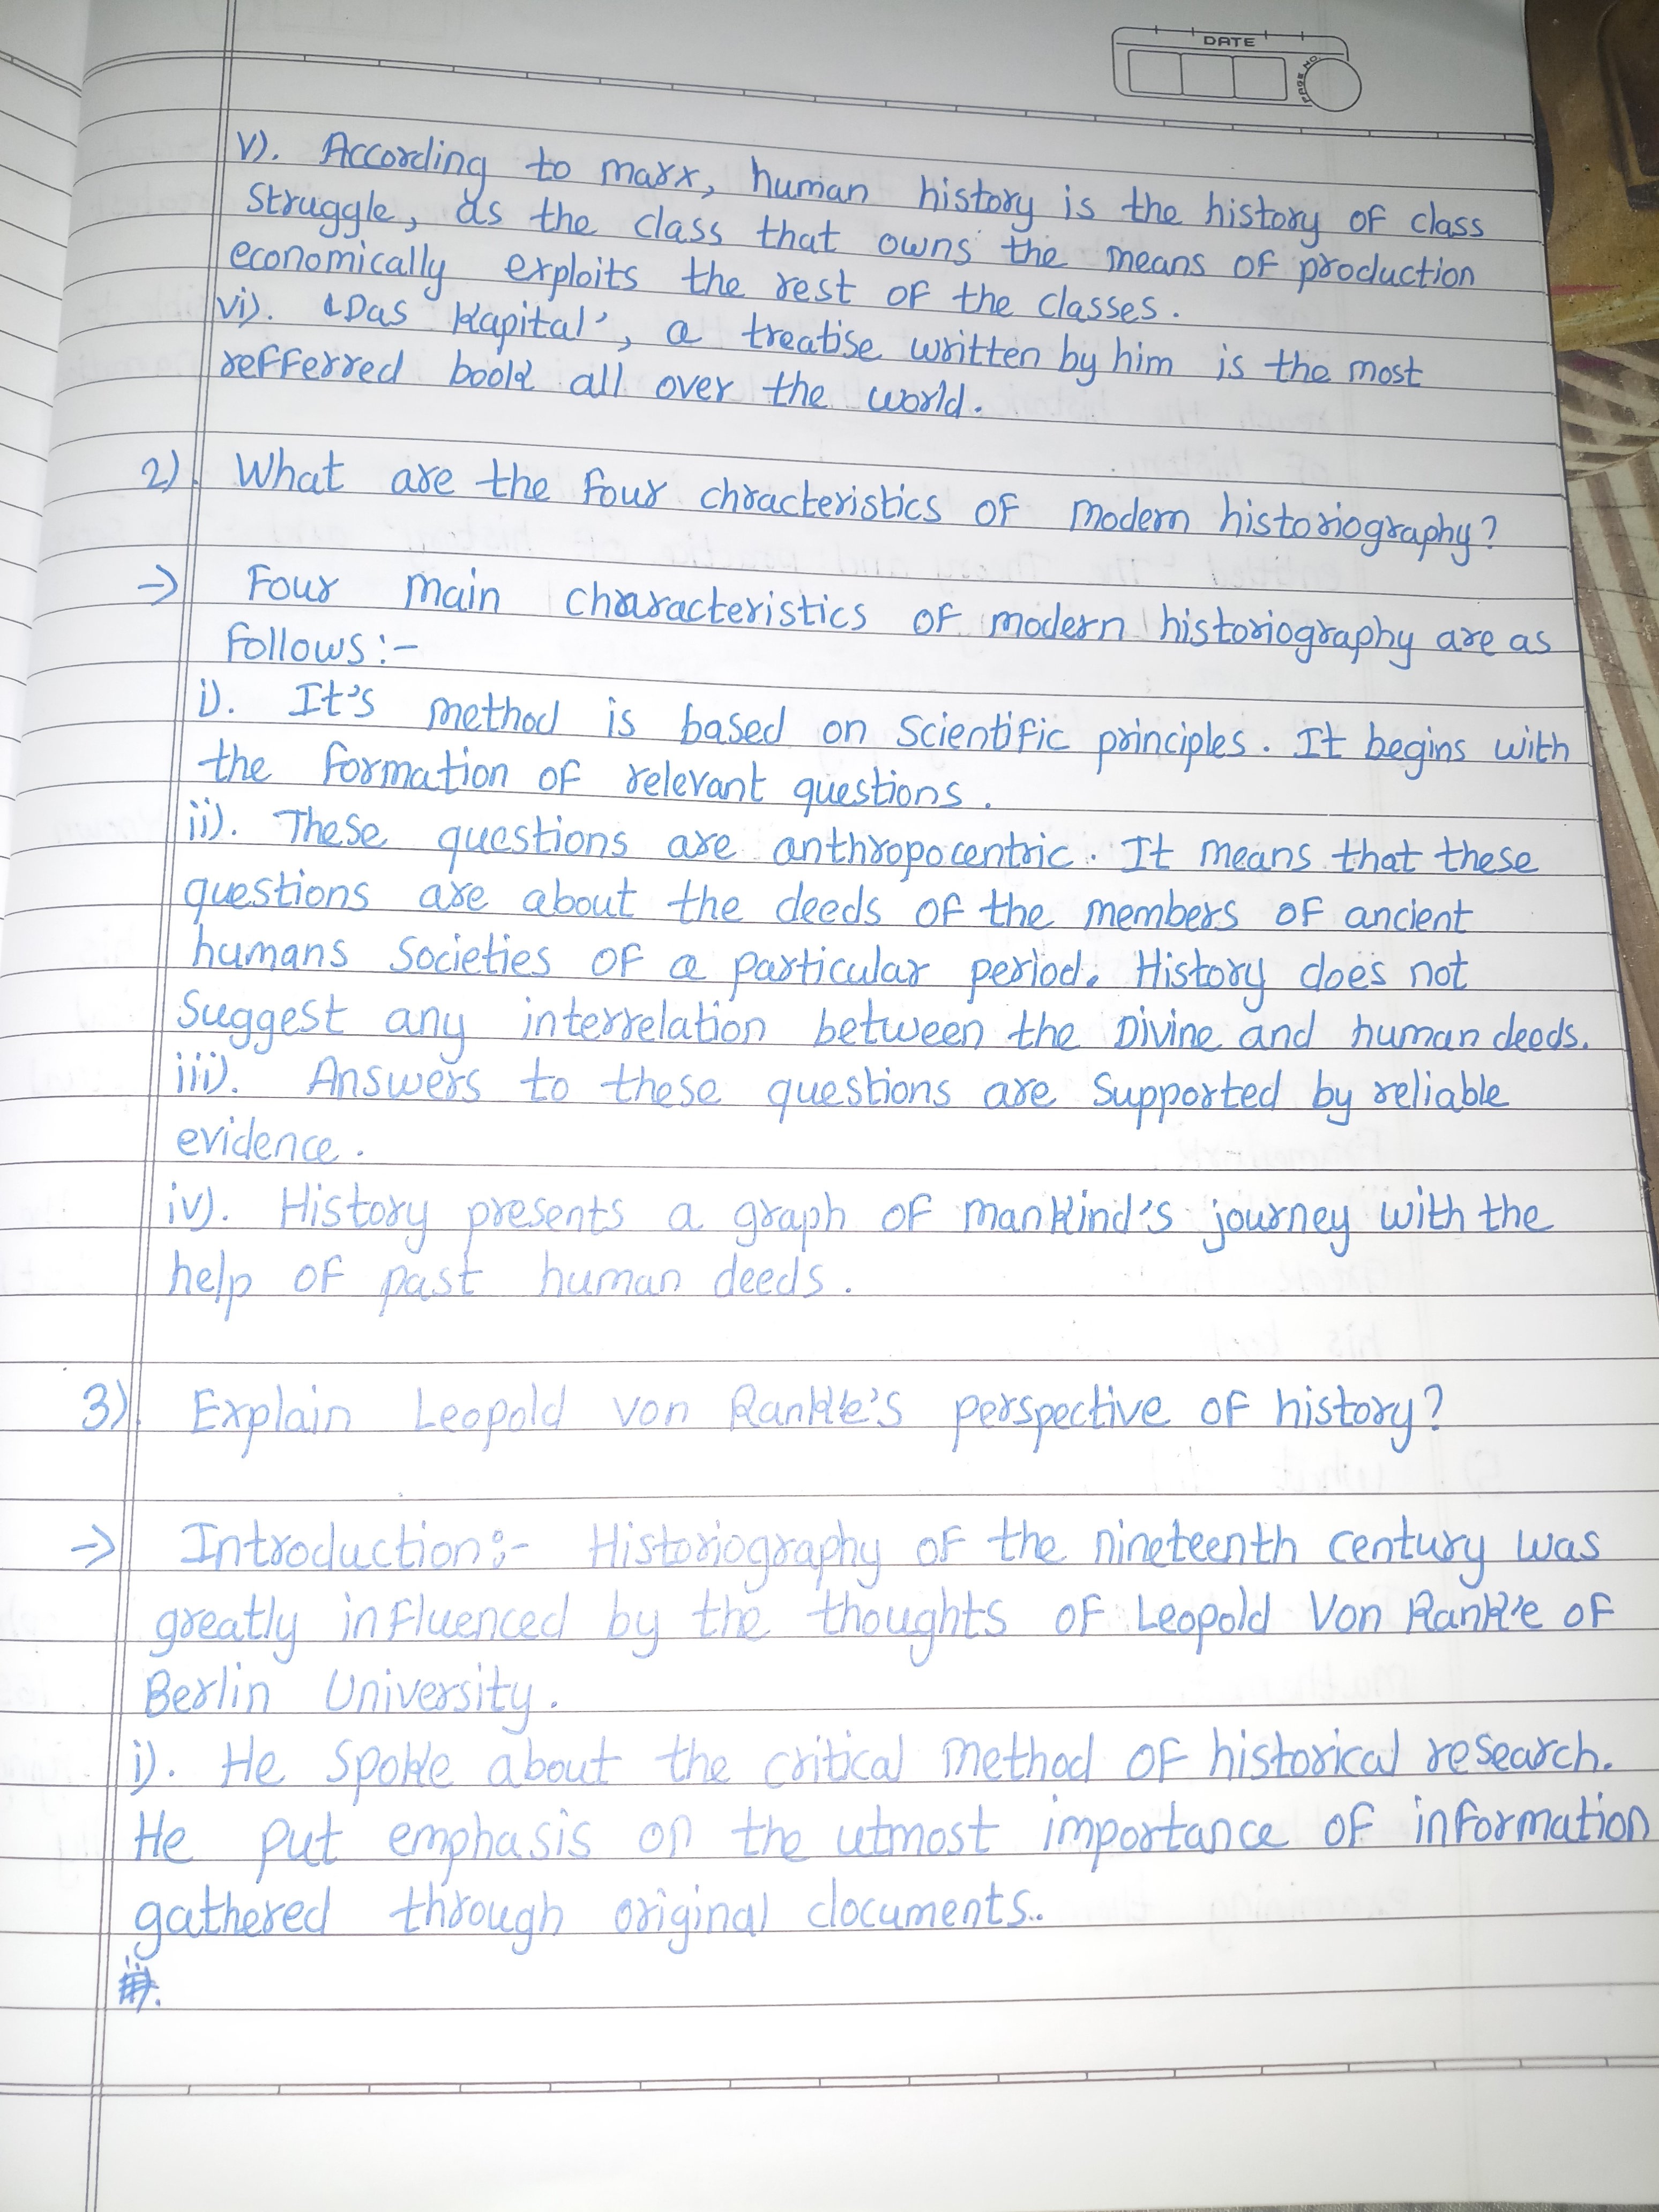 DATE
PAGE NO.
v). According to marx, human history is the history of class
struggle, as the class that owns the means of production
economically exploits the rest of the classes.
vi). 'Das Kapital', a treatise written by him is the most
refferred book all over the world.
2) What are the four chracteristics of modern historiography?
→ Four main characteristics of modern historiography are as
follows :-
i). It's method is based on scientific principles. It begins with
the formation of relevant questions.
ii). These questions are anthropocentric. It means that these
questions are about the deeds of the members of ancient
humans societies of a particular period. History does not
suggest any interrelation between the Divine and human deeds.
iii). Answers to these questions are supported by reliable
evidence.
iv). History presents a graph of mankind's journey with the
help of past human deeds.
3) Explain Leopold von Ranke's perspective of history?
→ Introduction:- Historiography of the nineteenth century was
greatly influenced by the thoughts of Leopold Von Ranke of
Berlin University.
i). He spoke about the critical method of historical research.
He put emphasis on the utmost importance of information
gathered through original documents..